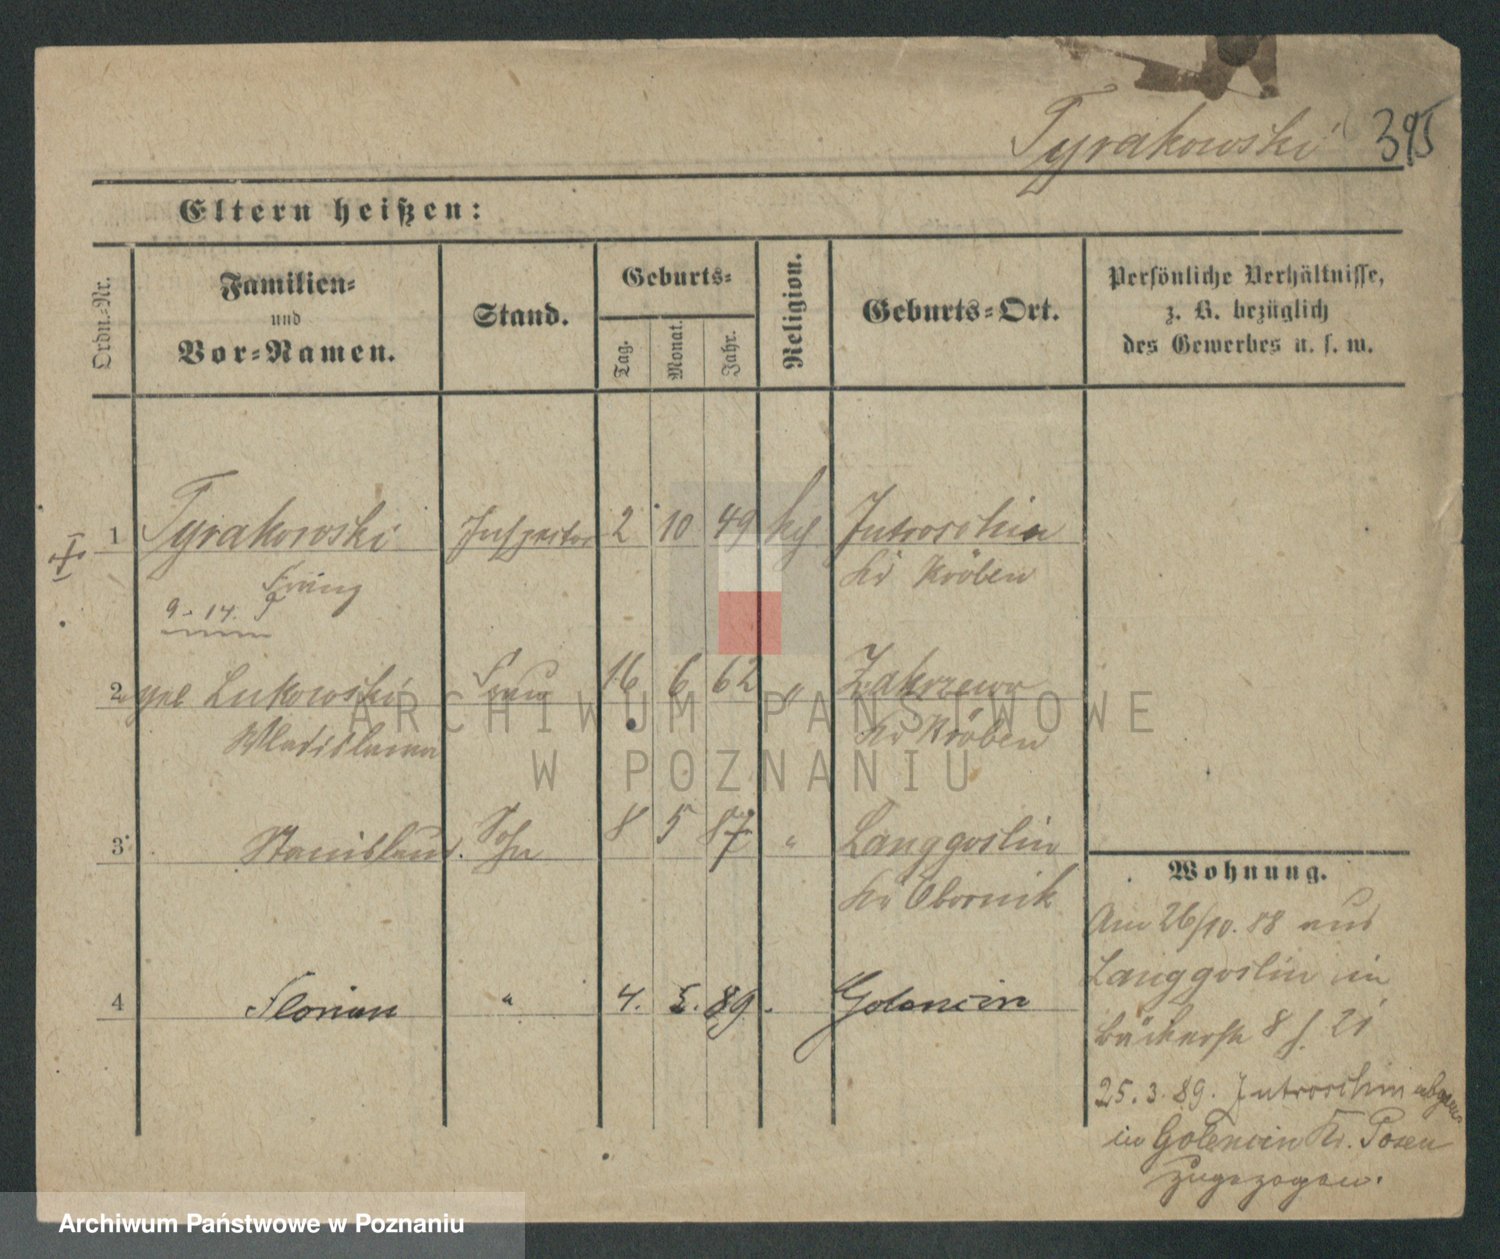 Tyrakowski 395
Eltern heißen:
Ordn.-Nr.
Familien-
und
Vor-Namen.
Stand.
Geburts-
Tag.
Monat.
Jahr.
Religion.
Geburts-Ort.
Persönliche Verhältnisse,
z. B. bezüglich
des Gewerbes u. s. w.
1 Tyrakowski Inspector 2 10 49 kg Jutroschin
Kr Kröben
9-14.
2 Lukowski Frau 16 6 62 " Zakrzewo
Wladislawa Kr Kröben
3 Stanislaus. Sohn 8 5 87 " Langgoslin
Kr Obornik
4 Florian " 4. 5. 89. Golencin
Wohnung.
Am 26/10. 88 aus
Langgoslin in
Bäckerstr 8 21
25. 3. 89. Jutroschin
in Golencin Kr. Posen
zugezogen.
ARCHIWUM PAŃSTWOWE
W POZNANIU
Archiwum Państwowe w Poznaniu